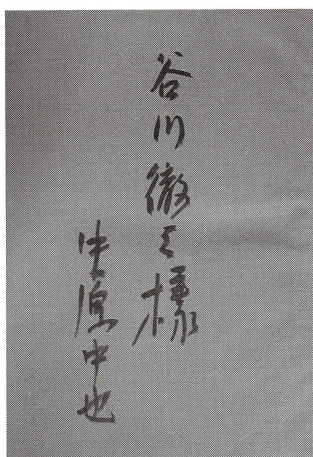 谷川徹三様
中原中也